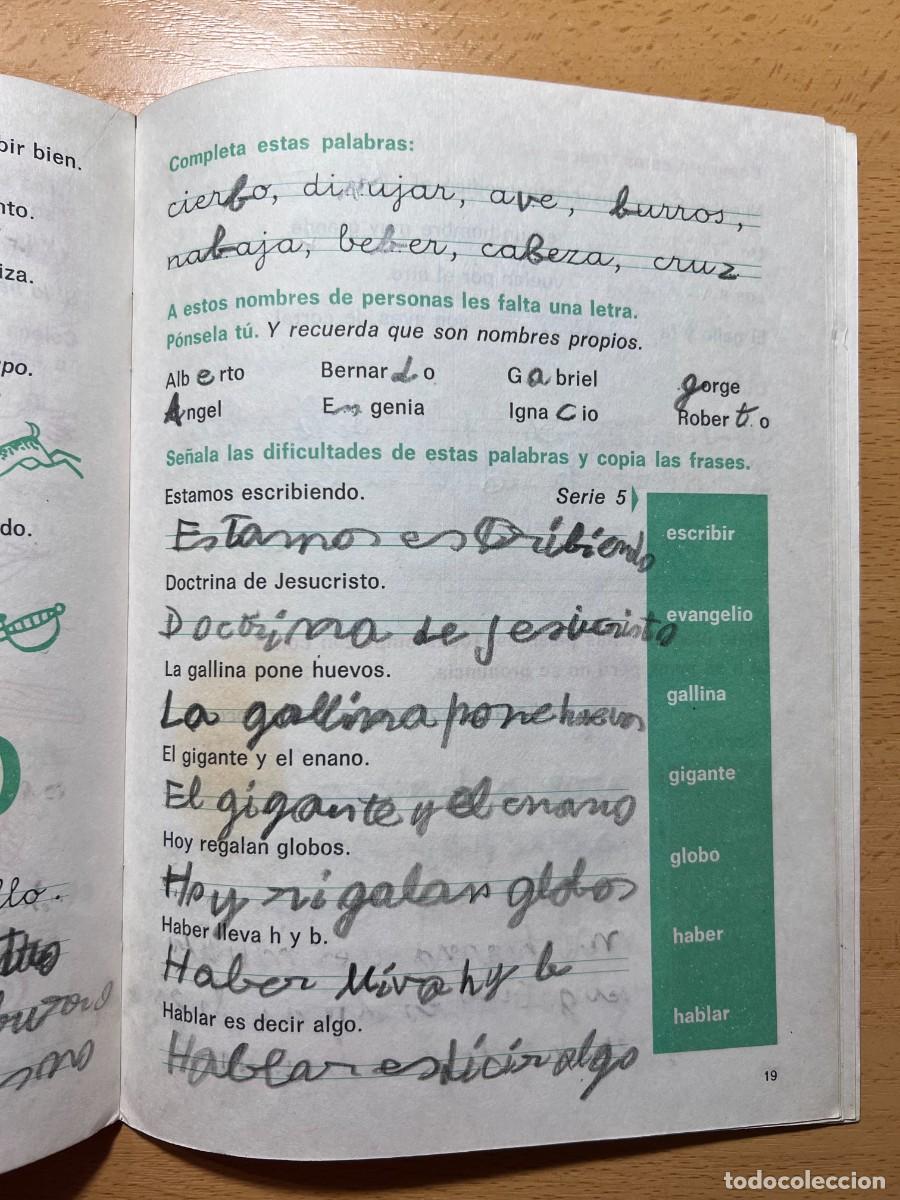 bir bien.
nto.
iza.
po.
do.
llo.
Completa estas palabras:
cierbo, dibujar, ave, burros,
nabaja, beber, cabeza, cruz
A estos nombres de personas les falta una letra.
Pónsela tú. Y recuerda que son nombres propios.
Alb e rto Bernar d o G a briel gorge
Angel E genia Igna c io Rober t o
Señala las dificultades de estas palabras y copia las frases.
Estamos escribiendo. Serie 5
Estamos escribiendo escribir
Doctrina de Jesucristo.
Doctrina de jesucristo evangelio
La gallina pone huevos.
La gallina pone huevos gallina
El gigante y el enano.
El gigante y el enano gigante
Hoy regalan globos.
Hoy rigalan globos globo
Haber lleva h y b.
Haber lliva h y b haber
Hablar es decir algo.
Hablar es dicir algo hablar
19
todocoleccion